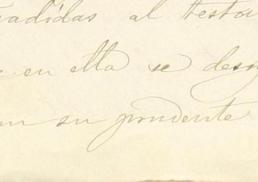 adidas al testa
en ella se des
su prudente